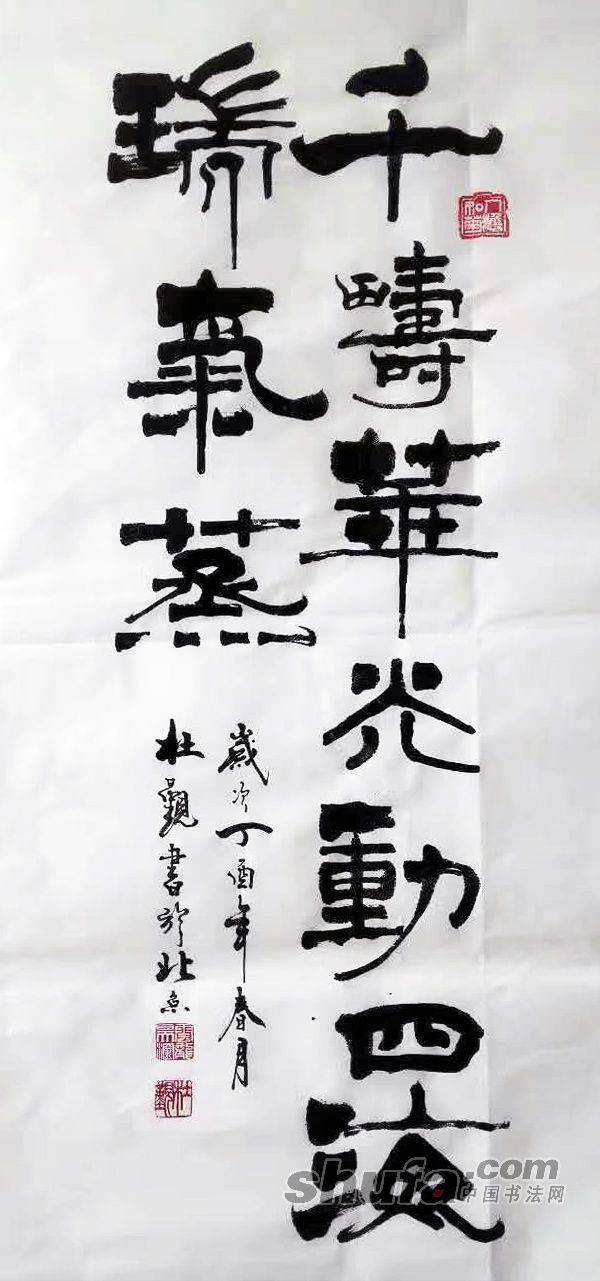 千疇華光動四海
瑞氣蒸
歲次丁酉年春月
杜觀書於北京
shufa.com
中国书法网